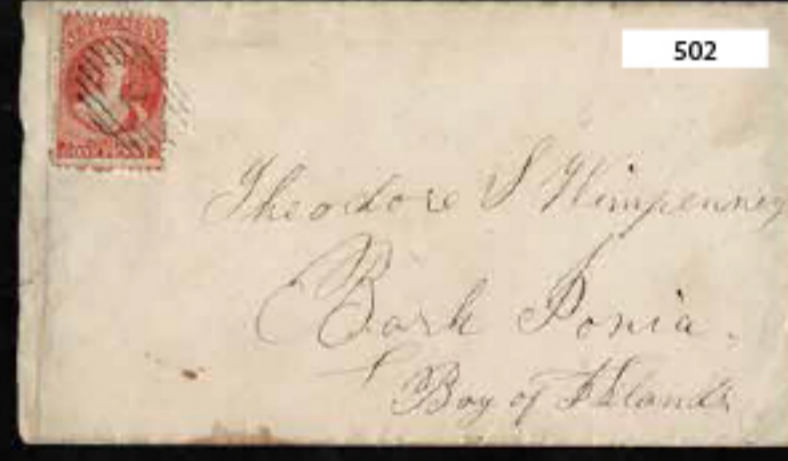 502
ONE PENNY
Theodore S Wimpenney
Bark Ionia.
Bay of Islands